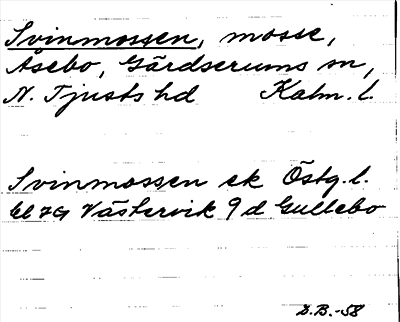 Svinmossen, mosse,
Åsebo, Gärdserums sn,
N. Tjusts hd Kalm. l.
Svinmossen ek Östg. l.
bl 79 Västervik 9 d Gullebo
D.B.-58